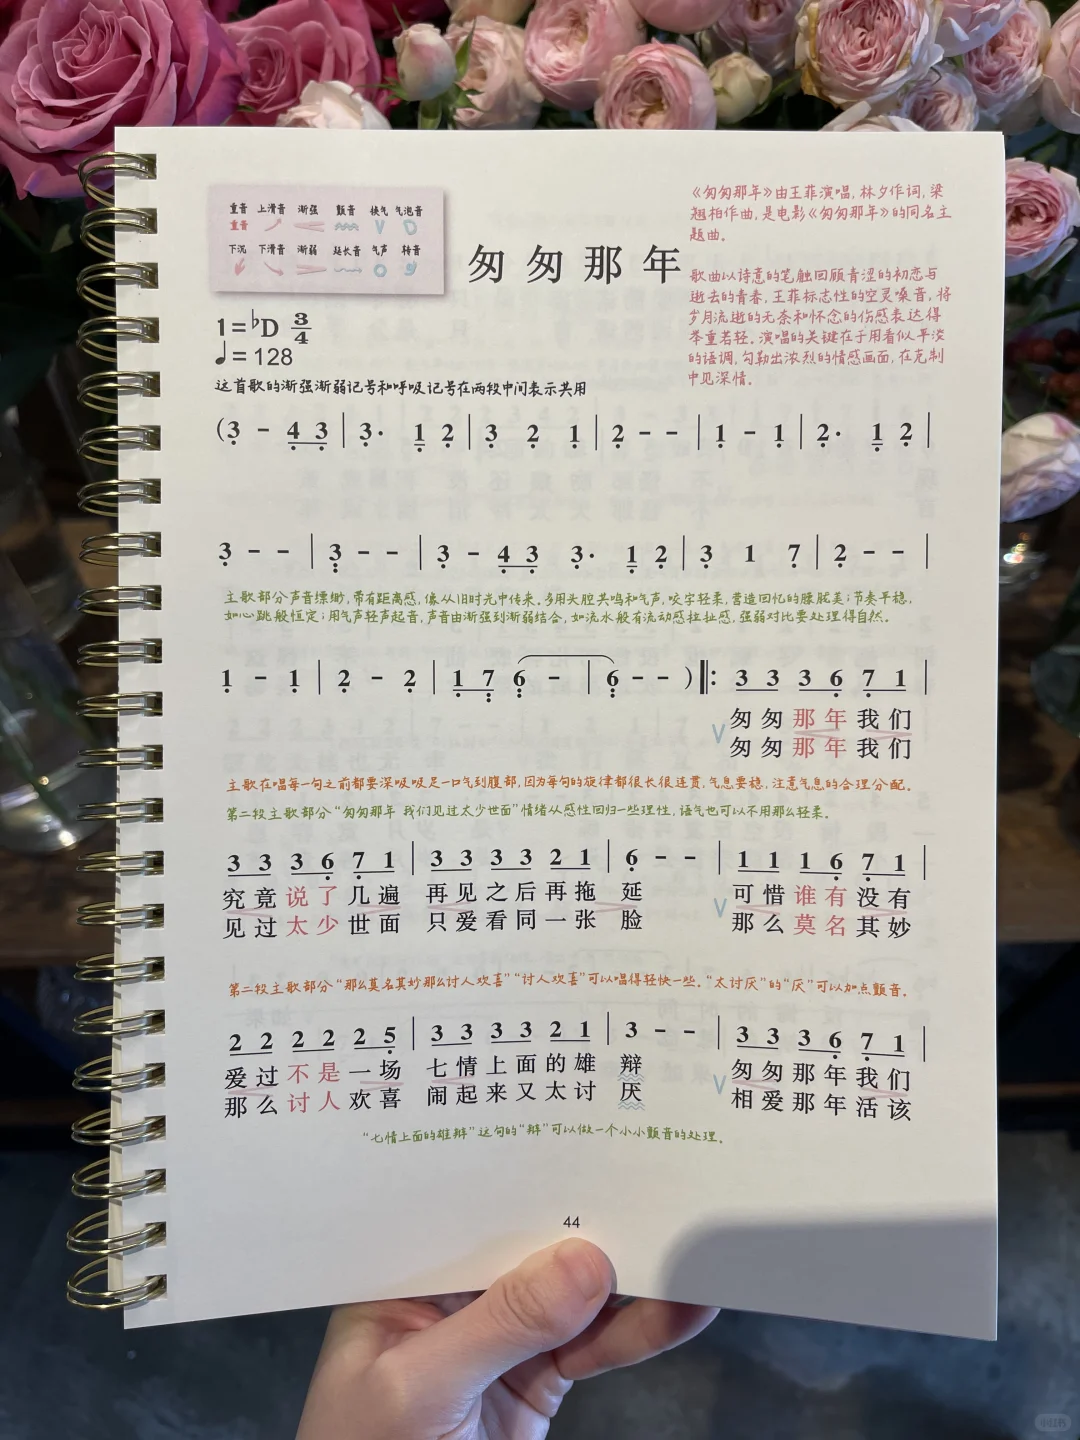 重音 上滑音 渐强 颤音 换气 气泡音
重音
下沉 下滑音 渐弱 延长音 气声 转音
匆匆那年
《匆匆那年》由王菲演唱,林夕作词,梁
翘柏作曲,是电影《匆匆那年》的同名主
题曲。
歌曲以诗意的笔触回顾青涩的初恋与
逝去的青春,王菲标志性的空灵嗓音,将
岁月流逝的无奈和怀念的伤感表达得
举重若轻。演唱的关键在于用看似平淡
的语调,勾勒出浓烈的情感画面,在克制
中见深情。
1=♭D 3/4
♩=128
这首歌的渐强渐弱记号和呼吸记号在两段中间表示共用
(3 - 4 3 | 3· 1 2 | 3 2 1 | 2 - - | 1 - 1 | 2· 1 2 |
3 - - | 3 - - | 3 - 4 3 3· 1 2 | 3 1 7 | 2 - - |
主歌部分声音缥缈,带有距离感,像从旧时光中传来。多用头腔共鸣和气声,咬字轻柔,营造回忆的朦胧美;节奏平稳,
如心跳般恒定;用气声轻声起音,声音由渐强到渐弱结合,如流水般有流动感拉扯感,强弱对比要处理得自然。
1 - 1 | 2 - 2 | 1 7 6 - | 6 - - ) ‖: 3 3 3 6 7 1 |
匆匆那年我们
匆匆那年我们
主歌在唱每一句之前都要深吸吸足一口气到腹部,因为每句的旋律都很长很连贯,气息要稳,注意气息的合理分配。
第二段主歌部分“匆匆那年 我们见过太少世面”情绪从感性回归一些理性,语气也可以不用那么轻柔。
3 3 3 6 7 1 | 3 3 3 3 2 1 | 6 - - | 1 1 1 6 7 1 |
究竟说了几遍 再见之后再拖 延 可惜谁有没有
见过太少世面 只爱看同一张 脸 那么莫名其妙
第二段主歌部分“那么莫名其妙那么讨人欢喜”“讨人欢喜”可以唱得轻快一些。“太讨厌”的“厌”可以加点颤音。
2 2 2 2 2 5 | 3 3 3 3 2 1 | 3 - - | 3 3 3 6 7 1 |
爱过不是一场 七情上面的雄 辩 匆匆那年我们
那么讨人欢喜 闹起来又太讨 厌 相爱那年活该
“七情上面的雄辩”这句的“辩”可以做一个小小颤音的处理。
44
小红书